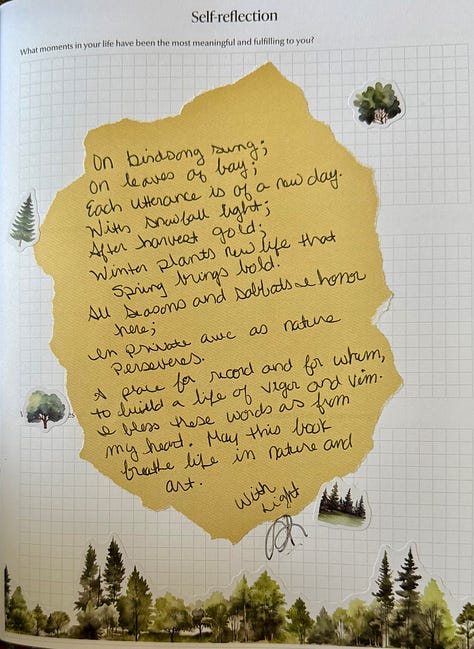 Self-reflection
What moments in your life have been the most meaningful and fulfilling to you?
On birdsong sung;
On leaves of bay;
Each utterance is of a new day.
With snowfall light;
After harvest gold;
Winter plants new life that
Spring brings bold.
All seasons and sabbats I honor
here;
in private awe as nature
perseveres.
A place for record and for whim,
to build a life of vigor and vim.
I bless these words as from
my heart. May this book
breathe life in nature and
art.
With
Light